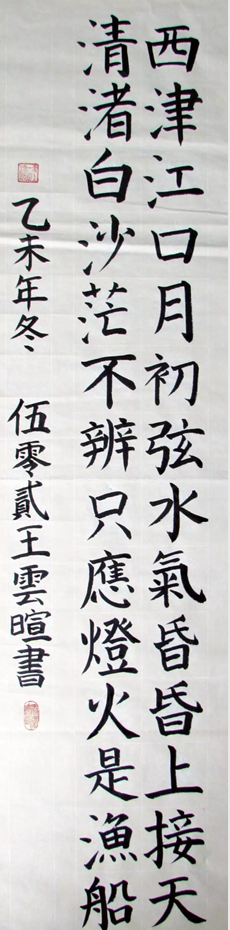 西津江口月初弦水氣昏昏上接天
清渚白沙茫不辨只應燈火是漁船
乙未年冬 伍零貳王雲暄書